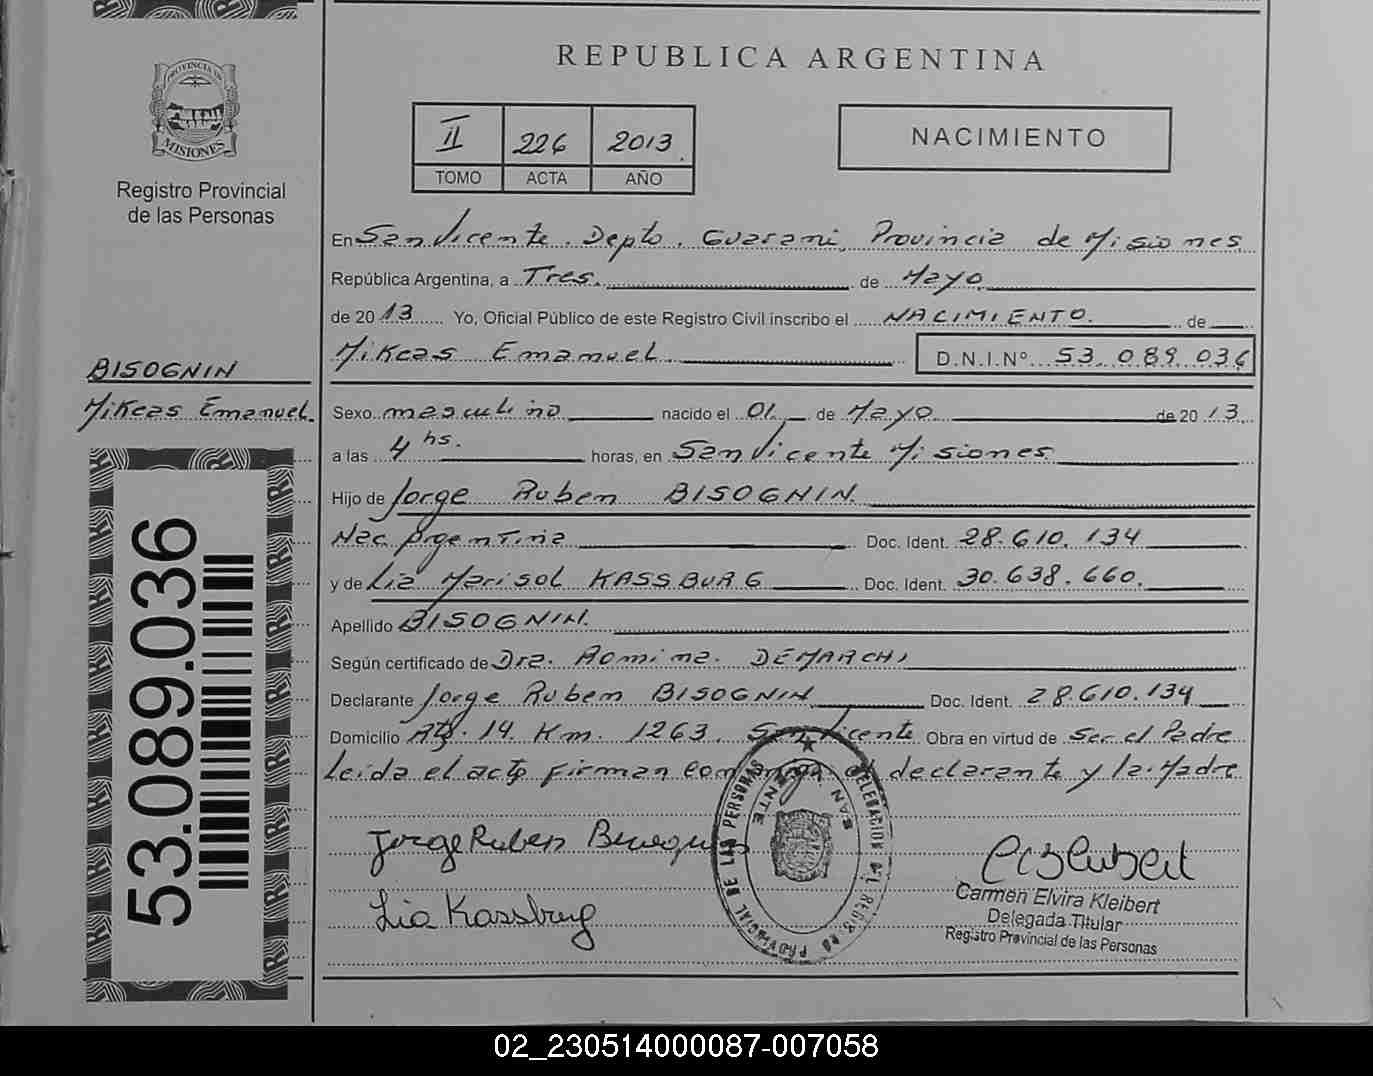 REPUBLICA ARGENTINA
PROVINCIA DE
MISIONES
Registro Provincial
de las Personas
II 226 2013
TOMO ACTA AÑO
NACIMIENTO
En San Vicente. Depto. Guarani, Provincia de Misiones
República Argentina, a Tres. de Mayo
de 2013 Yo, Oficial Público de este Registro Civil inscribo el NACIMIENTO. de
Mikeas Emanuel D.N.I.Nº 53.089.036
BISOGNIN
Mikeas Emanuel
Sexo masculino nacido el 01 de Mayo de 2013
a las 4 hs. horas, en San Vicente Misiones
Hijo de Jorge Ruben BISOGNIN
Nac Argentina Doc. Ident. 28.610.134
y de Lia Marisol KASSBURG Doc. Ident. 30.638.660.
Apellido BISOGNIN.
Según certificado de Dra. Romina. DEMARCHI
Declarante Jorge Ruben BISOGNIN Doc. Ident. 28.610.134
Domicilio Rta. 14 Km. 1263. San Vicente Obra en virtud de Ser el Padre
Leida el acta firman conmigo el declarante y la Madre
53.089.036
Jorge Ruben
Lia Kassburg
PROVINCIAL DE LAS PERSONAS
DELEGACION DEL REGISTRO
SAN VICENTE
Carmen Elvira Kleibert
Delegada Titular
Registro Provincial de las Personas
02_230514000087-007058